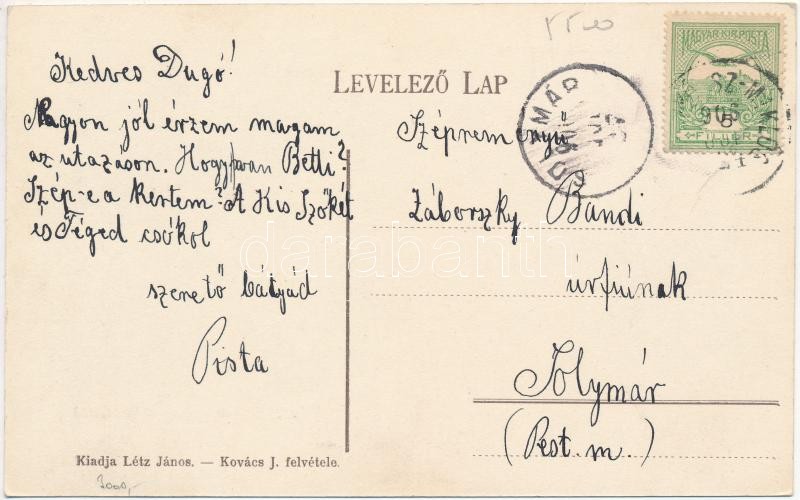 Kedves Dugó!
Nagyon jól érzem magam
az utazáson. Hogy van Betti?
Szép-e a kertem? A Kis Szőkét
és Téged csókol
szerető bátyád
Pista
Kiadja Létz János. — Kovács J. felvétele.
3000,-
LEVELEZŐ LAP
Szépreményü
Záborszky Bandi
úrfiúnak
Solymár
(Pest. m.)
MAGYAR KIR. POSTA
6
FILLÉR
darabanth